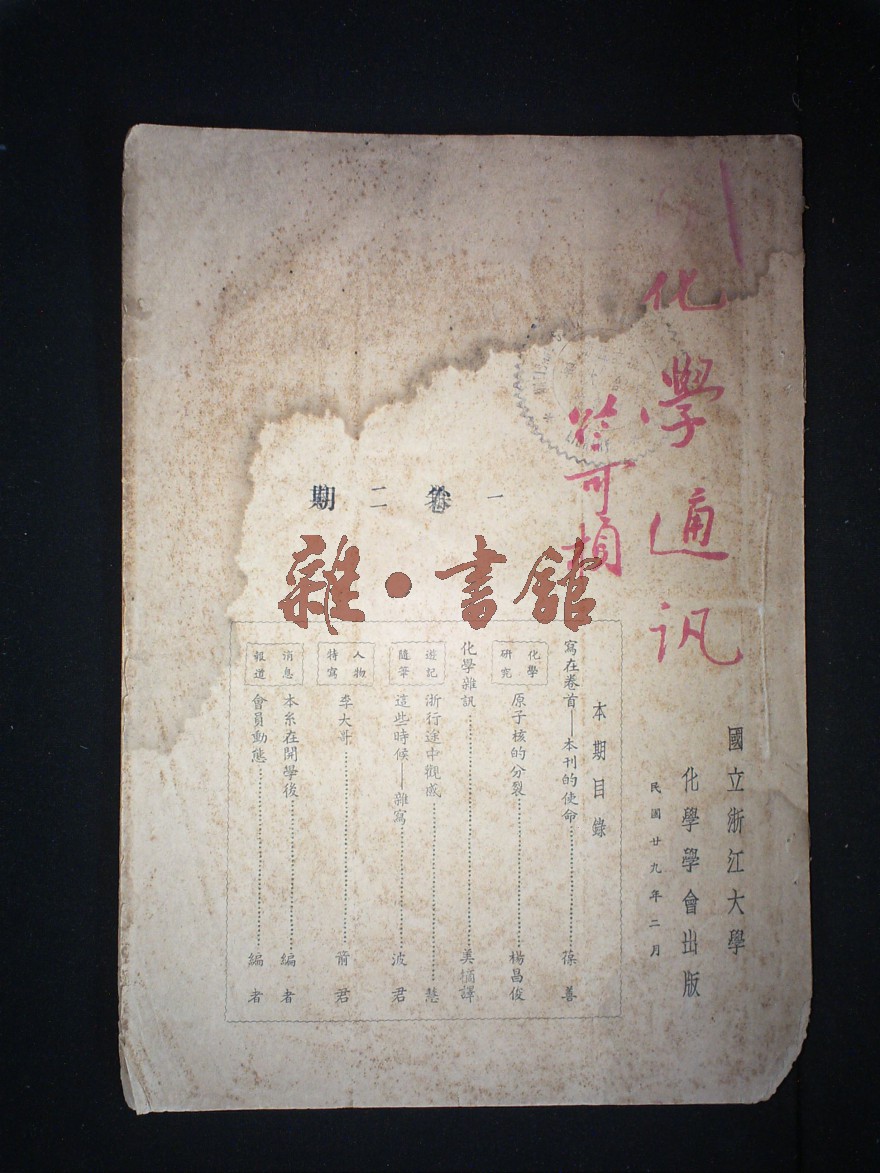 化學通訊
竺可楨
國立浙江大學
化學學會出版
民國廿九年二月
一卷二期
雜·書館
本期目錄
寫在卷首——本刊的使命 葆善
化學研究 原子核的分裂 楊昌俊
化學雜訊 美橘譯
遊記隨筆 浙行途中觀感 慧
這些時候——雜寫 波君
人物特寫 李大哥 箭君
消息報道 本系在開學後 編者
會員動態 編者